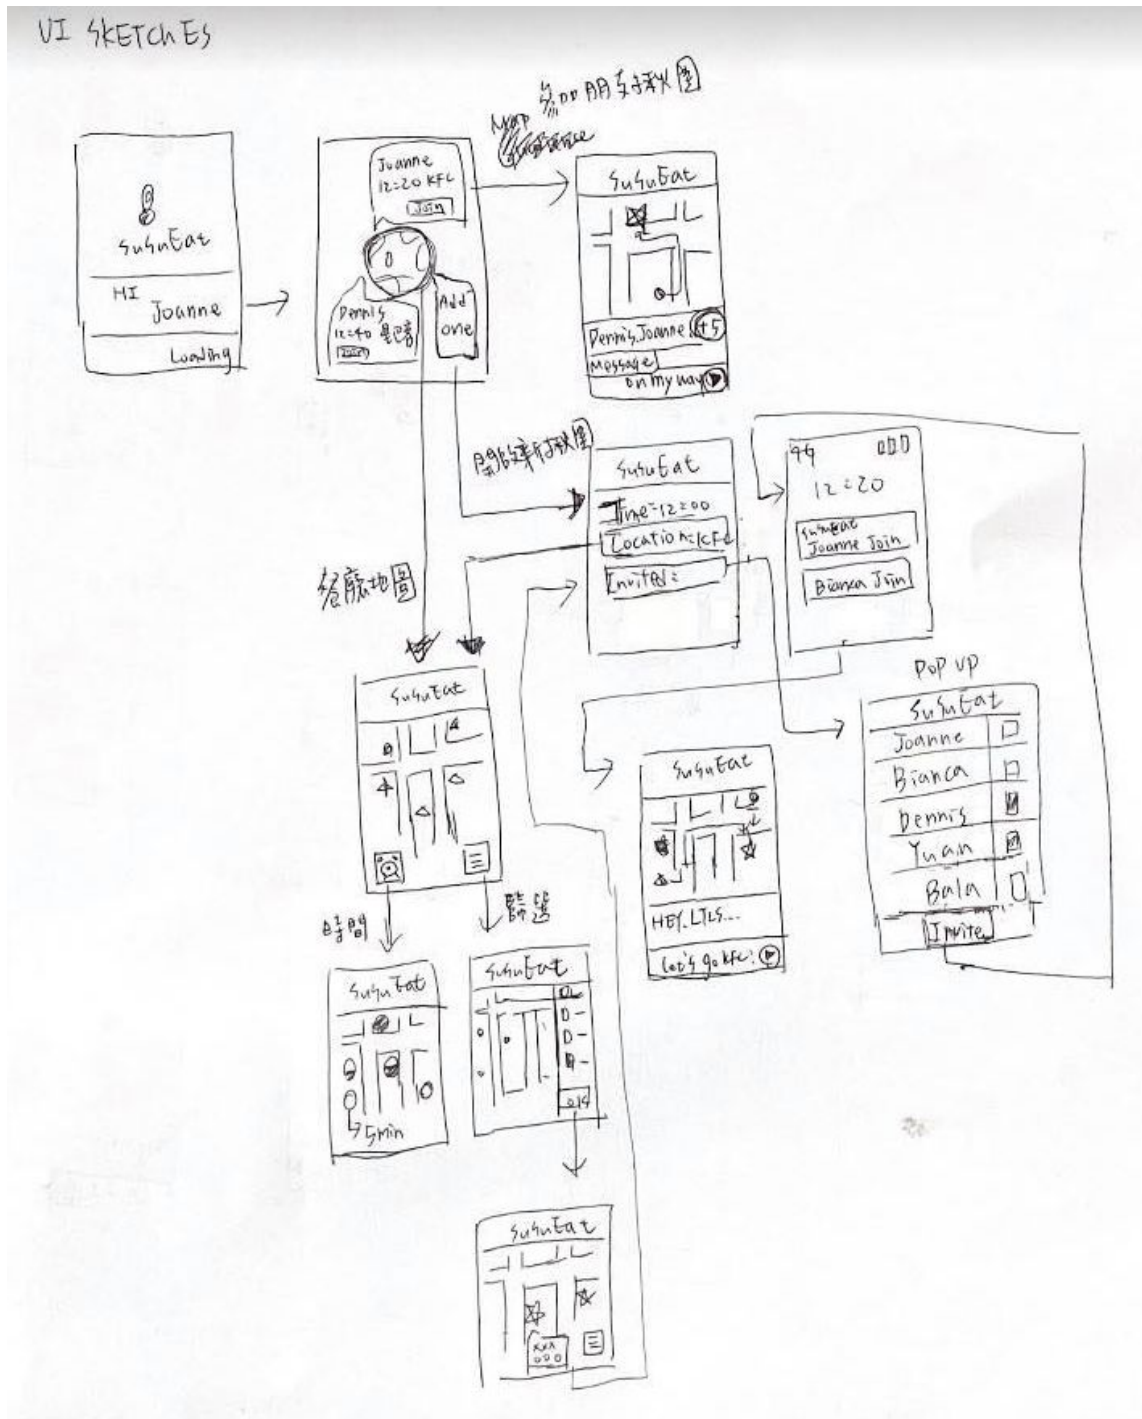 UI SKETCHES
SuSuEat
HI
Joanne
Loading
Joanne
12:20 KFC
Join
Dennis
12:40
Join
Add
one
Map
參加朋友揪團
SuSuEat
Dennis, Joanne. +5
Message
on my way
開啟新揪團
SuSuEat
Time=12:00
Location=KFC
Invited=
12:20
SuSuEat
Joanne Join
Bianca Join
餐廳地圖
SuSuEat
時間
篩選
SuSuEat
5min
SuSuEat
ok
SuSuEat
xxx
ooo
SuSuEat
HEY. LTLS...
Let's go KFC!
POP UP
SuSuEat
Joanne
Bianca
Dennis
Yuan
Bala
Invite